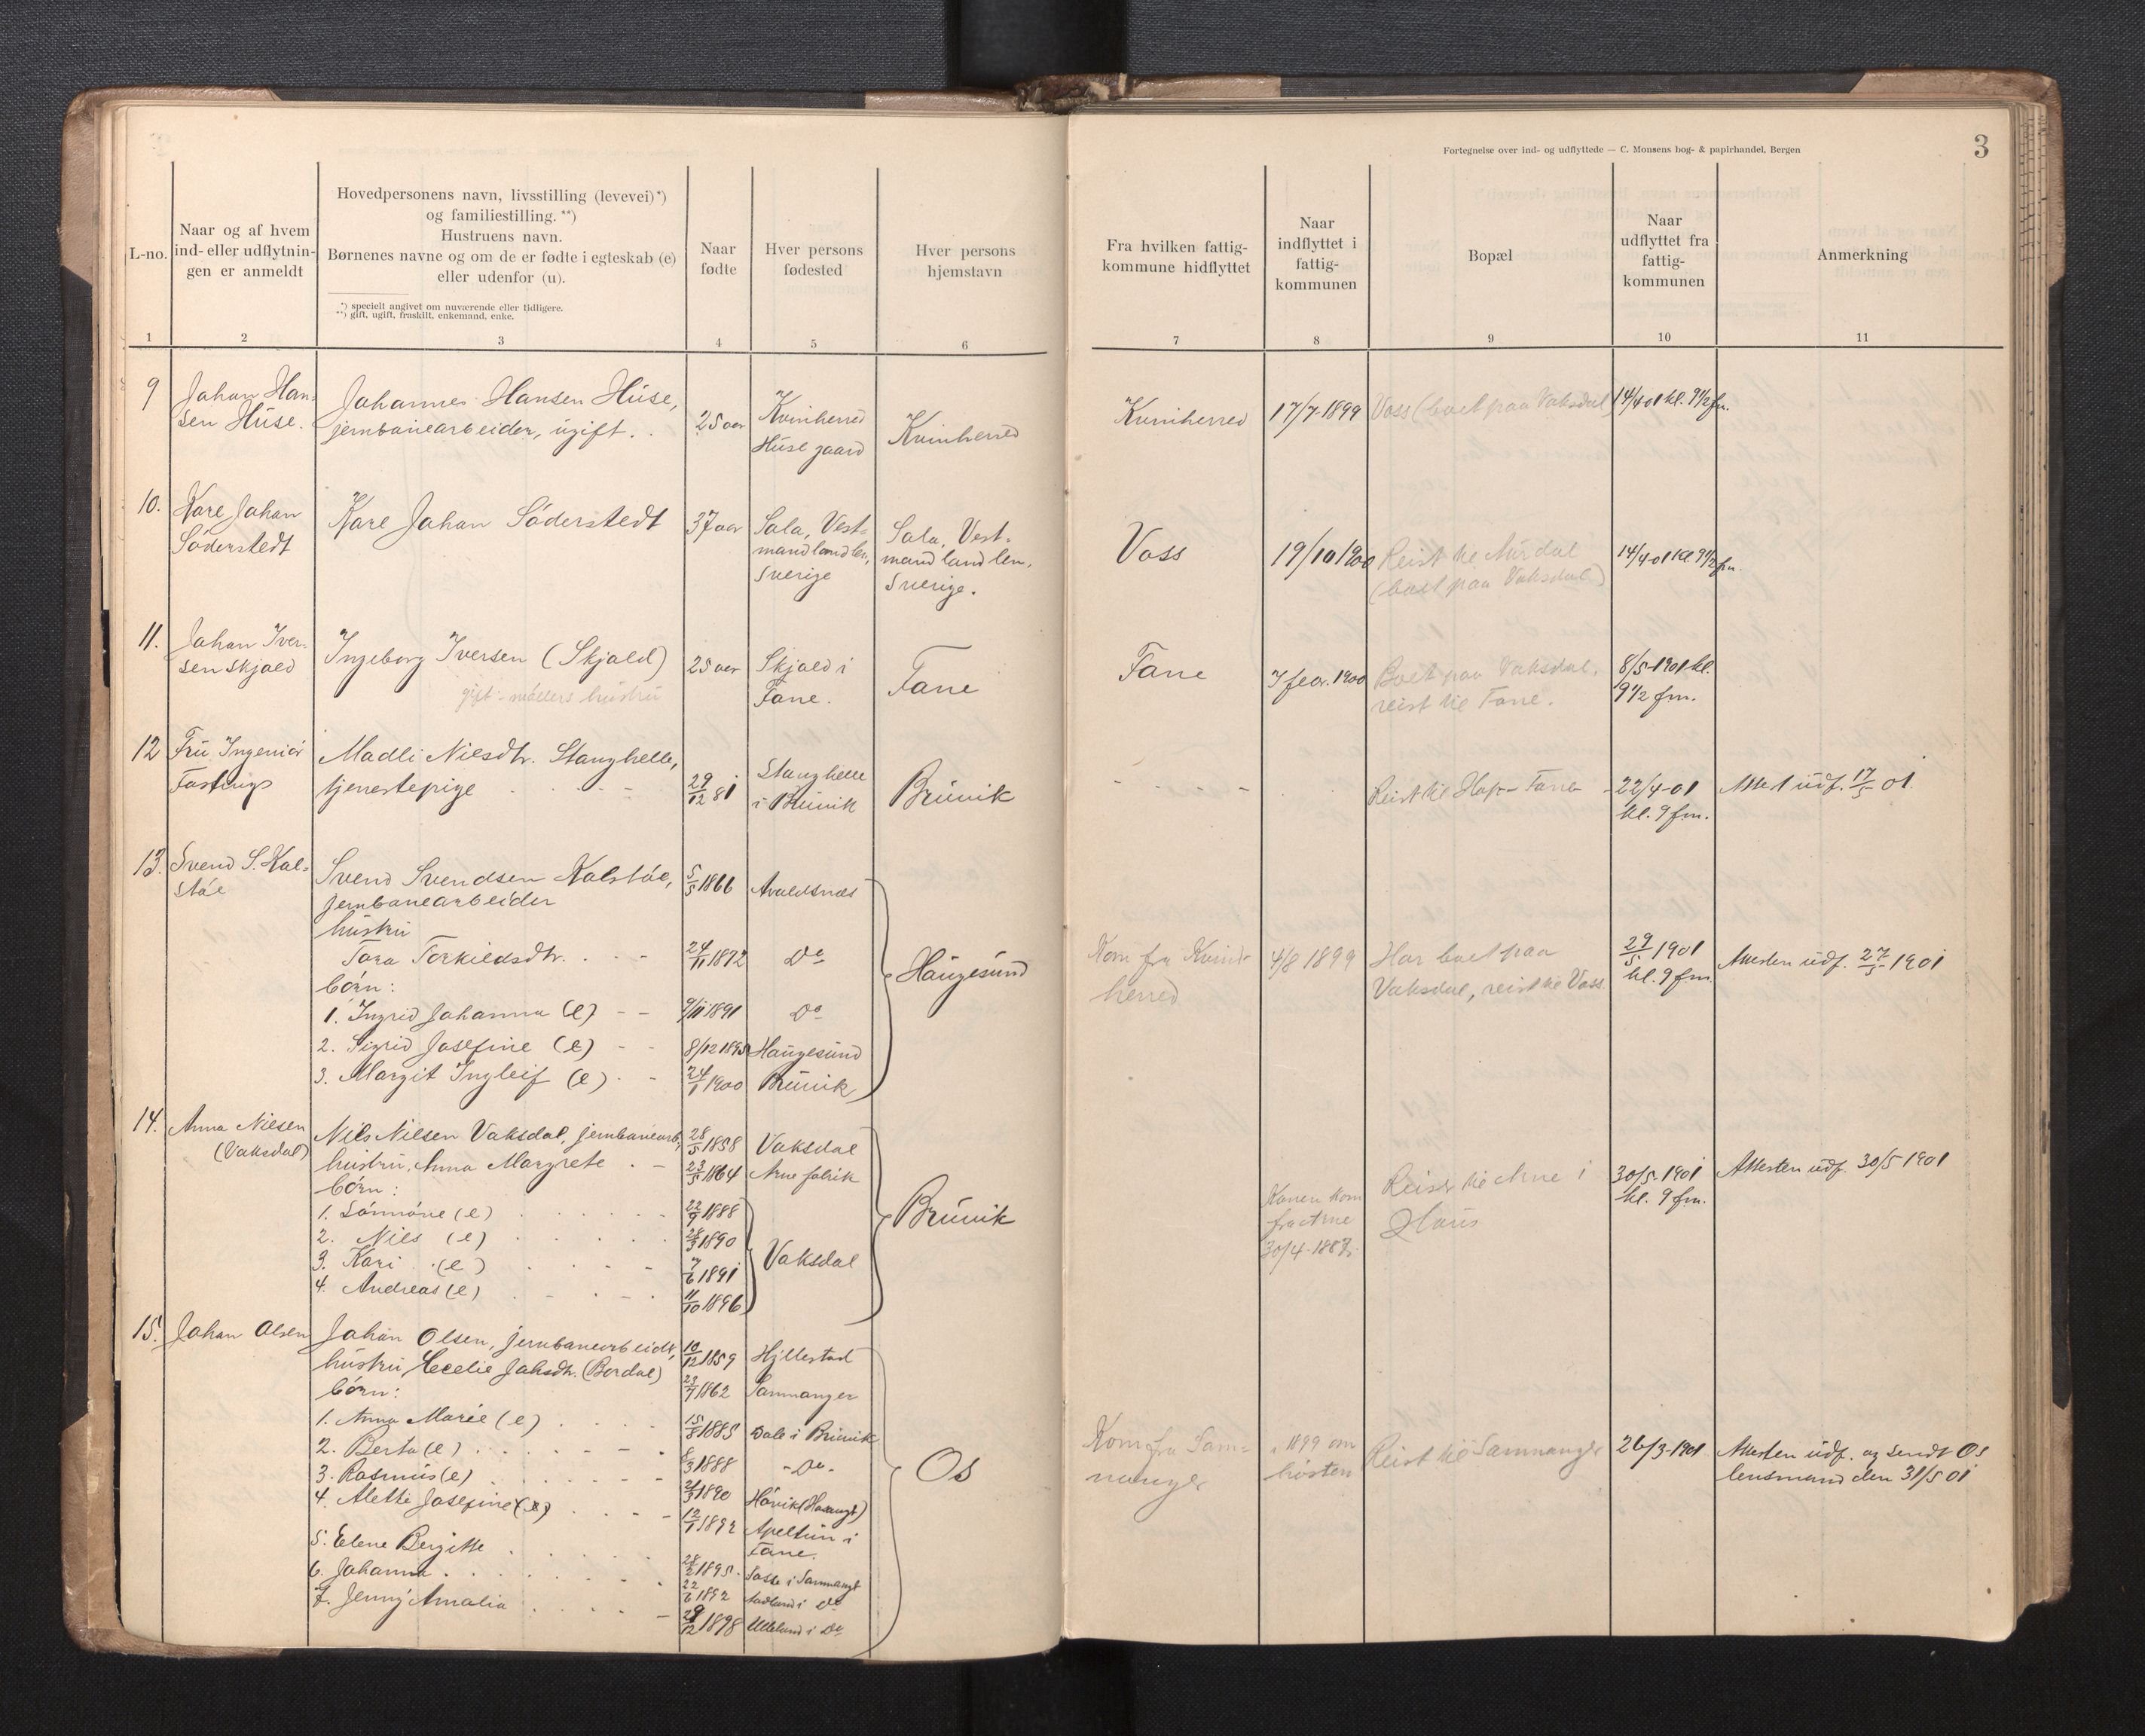 Fortegnelse over ind- og udflyttede — C. Monsens bog- & papirhandel, Bergen
3
L-no.
Naar og af hvem
ind- eller udflytnin-
gen er anmeldt
Hovedpersonens navn, livsstilling (levevei)*)
og familiestilling. **)
Hustruens navn.
Børnenes navne og om de er fødte i egteskab (e)
eller udenfor (u).
*) specielt angivet om nuværende eller tidligere.
**) gift, ugift, fraskilt, enkemand, enke.
Naar
fødte
Hver persons
fødested
Hver persons
hjemstavn
Fra hvilken fattig-
kommune hidflyttet
Naar
indflyttet i
fattig-
kommunen
Bopæl
Naar
udflyttet fra
fattig-
kommunen
Anmerkning
1 2 3 4 5 6 7 8 9 10 11
9
Johan Han-
sen Huse.
Johannes Hansen Huse,
jernbanearbeider, ugift.
25 aar
Kvinherred
Huse gaard
Kvinherred
Kvinherred
17/7-1899
Voss (boet paa Vaksdal)
14/4 01 kl. 9 1/2 fm.
10.
Kare Johan
Söderstedt
Kare Johan Söderstedt
37 aar
Sala, Vest-
mandland len,
Sverige
Sala, Vest-
mandland len,
Sverige.
Voss
19/10 1900
Reist til
(boet paa Vaksdal)
14/4-01 kl. 9 1/2 fm.
11.
Johan Iver-
sen Skjold
Ingeborg Iversen (Skjold)
gift - møllers hustru
25 aar
Skjold i
Fane.
Fane
Fane
7 febr. 1900
Boet paa Vaksdal,
reist til Fane.
8/5-1901 kl.
9 1/2 fm.
12
Fru Ingeniør
Madli Nielsdtr. Stanghelle,
tjenestepige
29/12 81
Stanghelle
i Bruvik
Bruvik
Reist til Hop - Fane
22/4-01
kl. 9 fm.
Attest udf. 17/5 01.
13.
Svend S. Kal-
støe
Svend Svendsen Kalstøe,
jernbanearbeider
hustru
Tora Torkildsdtr.
børn:
1. Ingrid Johanna (e)
2. Sigrid Josefine (e)
3. Margit Ingleif (e)
5/5 1866
24/11 1872
9/11 1891
8/12 1895
24/1 1900
Avaldsnæs
Do
Do
Haugesund
Bruvik
Haugesund
Kom fra Kvind-
herred
4/8 1899
Har boet paa
Vaksdal, reist til Voss
29/5 1901
kl. 9 fm.
Attesten udf. 27/5 1901
14.
Anna Nilsen
(Vaksdal)
Nils Nilsen Vaksdal, jernbanearb,
hustru, Anna Margrete
børn:
1. (e)
2. Nils (e)
3. Kari (e)
4. Andreas (e)
28/5 1858
23/5 1864
22/9 1888
28/3 1890
7/6 1891
11/10 1896
Vaksdal
Arne fabrik
Vaksdal
Bruvik
Konen kom
fra Arne
30/4-1887.
Reiser til Arne i
Haus
30/5-1901
kl. 9 fm.
Attesten udf. 30/5 1901
15.
Johan Olsen
Johan Olsen, jernbanearbeider,
hustru, Cecelie Jaksdtr. (Bordal)
børn:
1. Anna Marie (e)
2. Berta (e)
3. Rasmus (e)
4. Alette Josefine (e)
5. Elene Bergitte
6. Johanna
7. Jenny Amalia
10/12 1859
23/7 1862
15/8 1885
8/3 1888
1890
12/1 1892
28/2 1895
22/6 1892
29/12 1898
Hyllestad
Samnanger
Dale i Bruvik
- Do -
Apeltun i
Fane.
i Do
i Do
Os
Kom fra Sam-
nanger
i 1899 om
høsten
Reist til Samnanger
26/3-1901
Attesten udf. og sendt Os
lensmand den 31/5 01